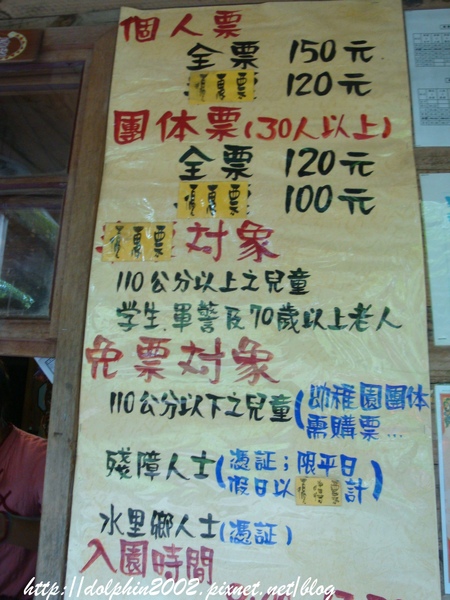 個人票
全票 150元
優惠票 120元
團体票(30人以上)
全票 120元
優惠票 100元
優惠票對象
110公分以上之兒童
学生.軍警及70歲以上老人
免票對象
110公分以下之兒童(幼稚園團体
需購票...
殘障人士(憑証;限平日
假日以優惠票計)
水里鄉人士(憑証)
入園時間
http://dolphin2002.pixnet.net/blog